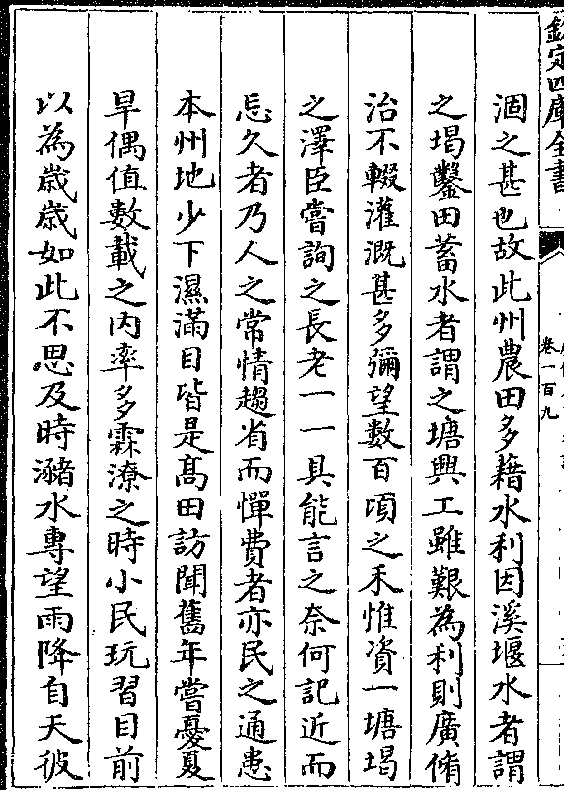 欽定四庫全書
卷一百九
涸之甚也故此州農田多藉水利因溪堰水者謂
之堨鑿田蓄水者謂之塘興工雖艱為利則廣脩
治不輟灌溉甚多彌望數百頃之禾惟資一塘堨
之澤臣嘗詢之長老一一具能言之奈何記近而
忘久者乃人之常情趨省而憚費者亦民之通患
本州地少下濕滿目皆是高田訪聞舊年嘗憂夏
旱偶值數載之内率多霖潦之時小民玩習目前
以為歲歲如此不思及時瀦水專望雨降自天彼